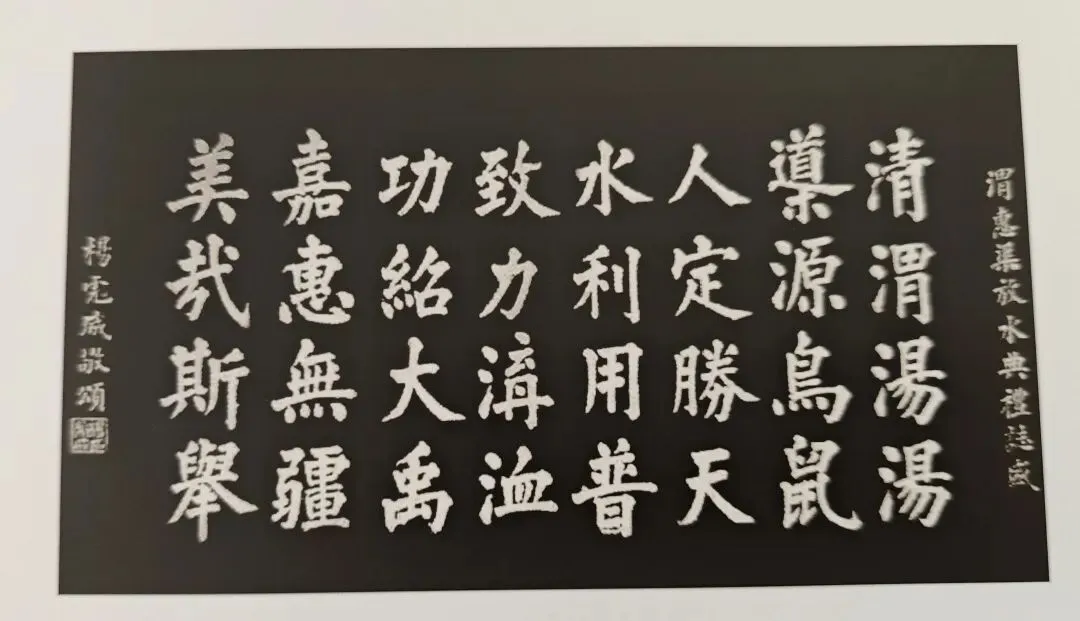 渭惠渠放水典禮誌盛
清渭湯湯
導源鳥鼠
人定勝天
水利用普
致力溝洫
功紹大禹
嘉惠無疆
美哉斯舉
楊虎城敬頌